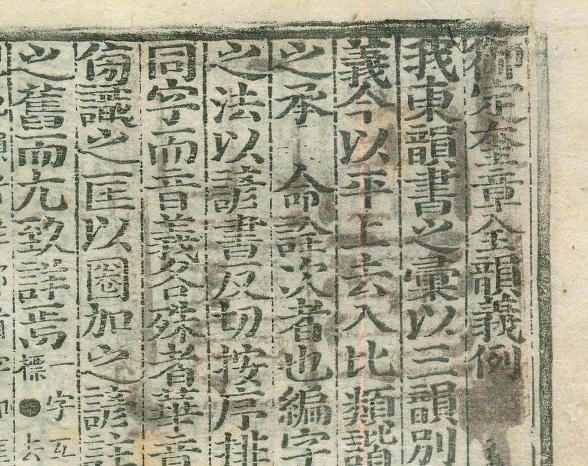 御定奎章全韻義例
我東韻書之彙以三韻別
義今以平上去入比類諧
之承 命詮次者也編字
之法以諺書反切按序排
同字而音義各殊者華音
傍識之匡以圈加之諺註
之舊而尤致詳焉 標一字互